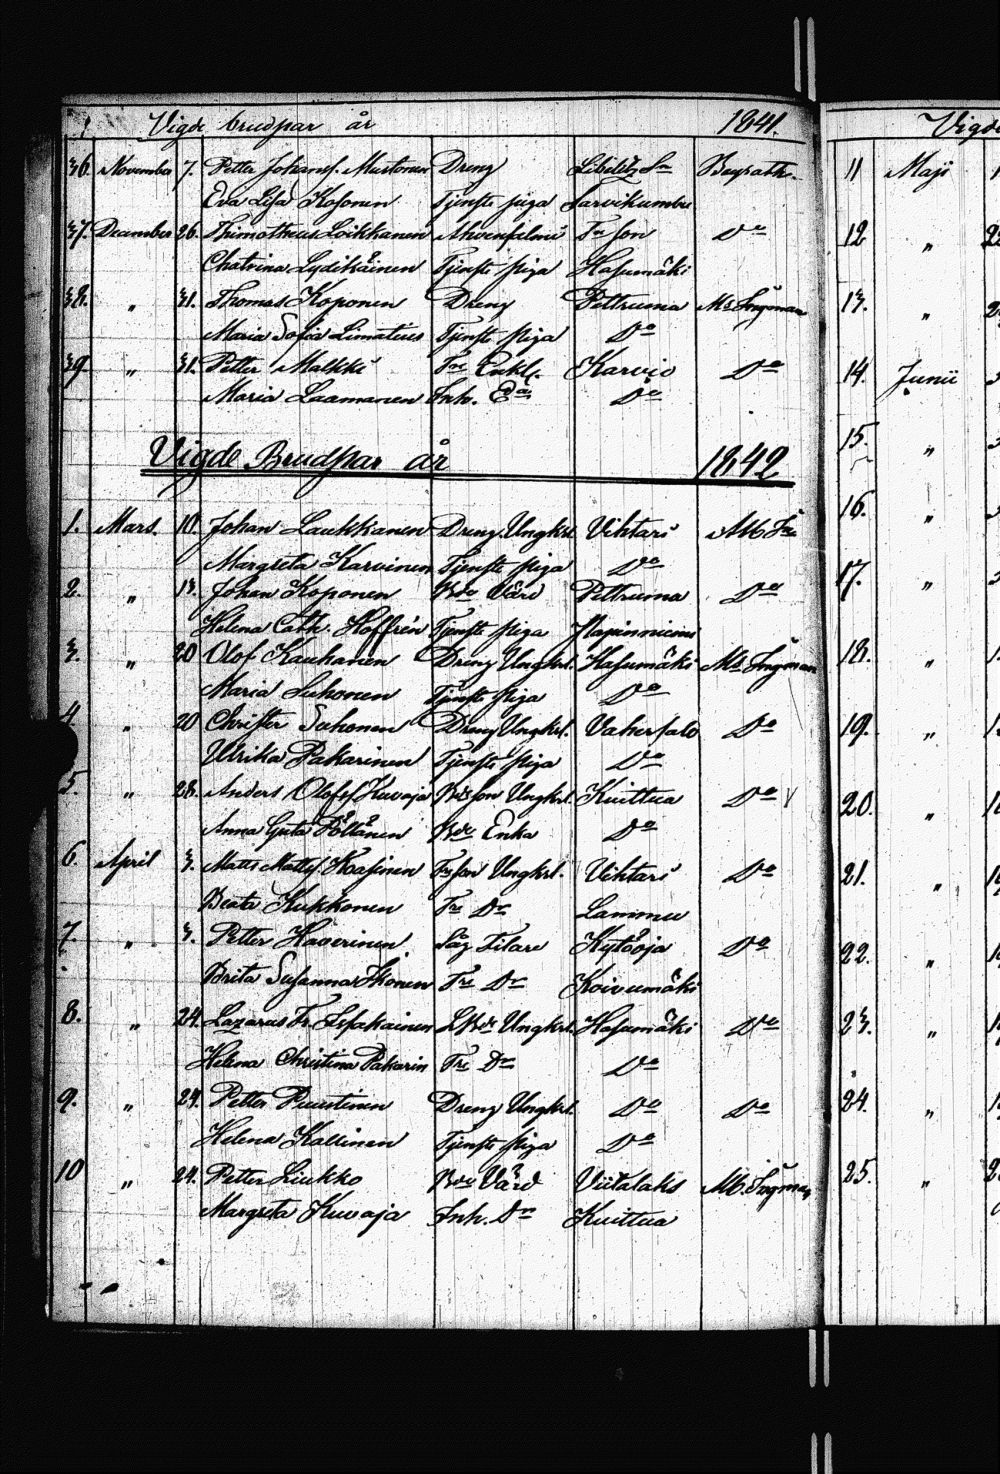 Vigde brudpar år 1841.
36. November 7. Petter Johansf. Mustonen Dreng Libelitz Sn
Eva Lisa Kosonen Tjenste piga Sarvikumbu
37. December 26. Thimotheus Loikkanen Ahvensalmi Do
Chatrina Lydikäinen Tjenste piga Hasumäki
38. " 31. Thomas Koponen Dreng Pettruma Mr. Ingman
Maria Sofia Limatius Tjenste piga Do
39 " 31. Petter Malkki Enkl. Karvio Do
Maria Laamanen Inh. Ea Do
Vigde Brudpar år 1842
1. Mars. 10. Johan Laukkanen Dreng Ungkrl Vihtari
Margreta Karvinen Tjenste piga Do
2. " 13. Johan Koponen Bde Värd Pettruma Do
Helena Cath. Hoffrén Tjenste piga
3. " 20 Olof Kauhanen Dreng Ungkrl. Hasumäki Mr. Ingman
Maria Suhonen Tjenste piga Do
4 " 20 Christer Suhonen Dreng Ungkrl. Vahersalo Do
Ulrika Pakarinen Tjenste piga Do
5 " 28. Anders Olofsf Kuvaja Bdeson Ungkrl. Kuittua Do
Anna Greta Pöllänen Bde Enka Do
6. April 3. Matts Mattsf. Kasinen Ungkrl. Vihtari Do
Beata Kukkonen Do Lammu
7. " 3. Petter Haverinen Såg Filare Kytöoja Do
Brita Susanna Ikonen Dr Koivumäki
8. " 24. Lazarus Ungkrl. Hasumäki Do
Helena Christina Pakarin Dr Do
9. " 24. Petter Puustinen Dreng Ungkrl. Do Do
Helena Kallinen Tjenste piga Do
10 " 24. Petter Liukko Bde Värd Viitalaks Mr. Ingman
Margreta Kuvaja Inh. Dr Kuittua
Vigde
11 Maji
12 "
13. "
14. Junii
15. "
16. "
17. "
18. "
19. "
20. "
21. "
22. "
23. "
24. "
25. "